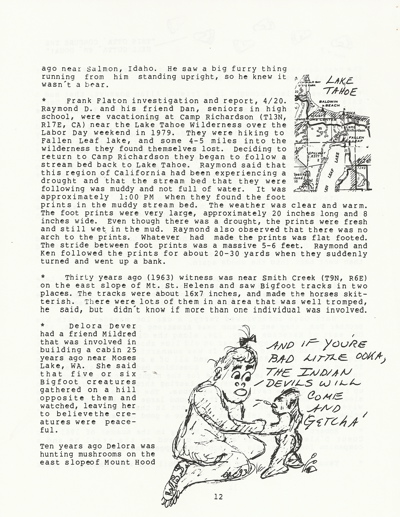 ago near Salmon, Idaho.  He saw a big furry thing
running from him standing upright, so he knew it
wasn't a bear.
*    Frank Platon investigation and report, 4/20.
Raymond D. and his friend Dan, seniors in high
school, were vacationing at Camp Richardson (T13N,
R17E, CA) near the Lake Tahoe Wilderness over the
Labor Day weekend in 1979.  They were hiking to
Fallen Leaf lake, and some 4-5 miles into the
wilderness they found themselves lost.  Deciding to
return to Camp Richardson they began to follow a
stream bed back to Lake Tahoe.  Raymond said that
this region of California had been experiencing a
drought and that the stream bed that they were
following was muddy and not full of water.  It was
approximately  1:00 PM  when they found the foot
prints in the muddy stream bed.  The weather was clear and warm.
The foot prints were very large, approximately 20 inches long and 8
inches wide.  Even though there was a drought, the prints were fresh
and still wet in the mud.  Raymond also observed that there was no
arch to the prints.  Whatever had made the prints was flat footed.
The stride between foot prints was a massive 5-6 feet.  Raymond and
Ken followed the prints for about 20-30 yards when they suddenly
turned and went up a bank.
LAKE
TAHOE
*    Thirty years ago (1963) witness was near Smith Creek (T9N, R6E)
on the east slope of Mt. St. Helens and saw Bigfoot tracks in two
places.  The tracks were about 16x7 inches, and made the horses skit-
terish.  There were lots of them in an area that was well tromped,
he  said, but  didn't know if more than one individual was involved.
*    Delora Dever
had a friend Mildred
that was involved in
building a cabin 25
years ago near Moses
Lake, WA.  She said
that five or six
Bigfoot creatures
gathered on a hill
opposite them and
watched, leaving her
to believethe cre-
atures were peace-
ful.
Ten years ago Delora was
hunting mushrooms on the
east slopeof Mount Hood
AND IF YOU'RE
BAD LITTLE OOKA,
THE INDIAN
DEVILS WILL
COME
AND
GETCHA'
12